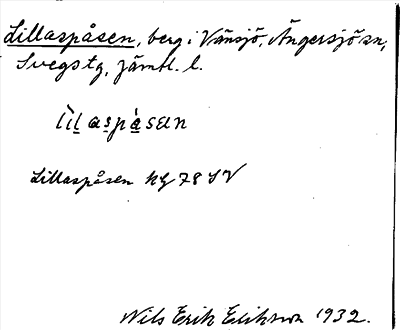 Lillaspåsen, berg i Vänsjö, Ängersjö sn,
Svegs tg, Jämtl. l.
lìl̲ as̲pȧ̲sæn
Lillaspåsen kg 78 SV
Nils Erik Eriksson 1932.